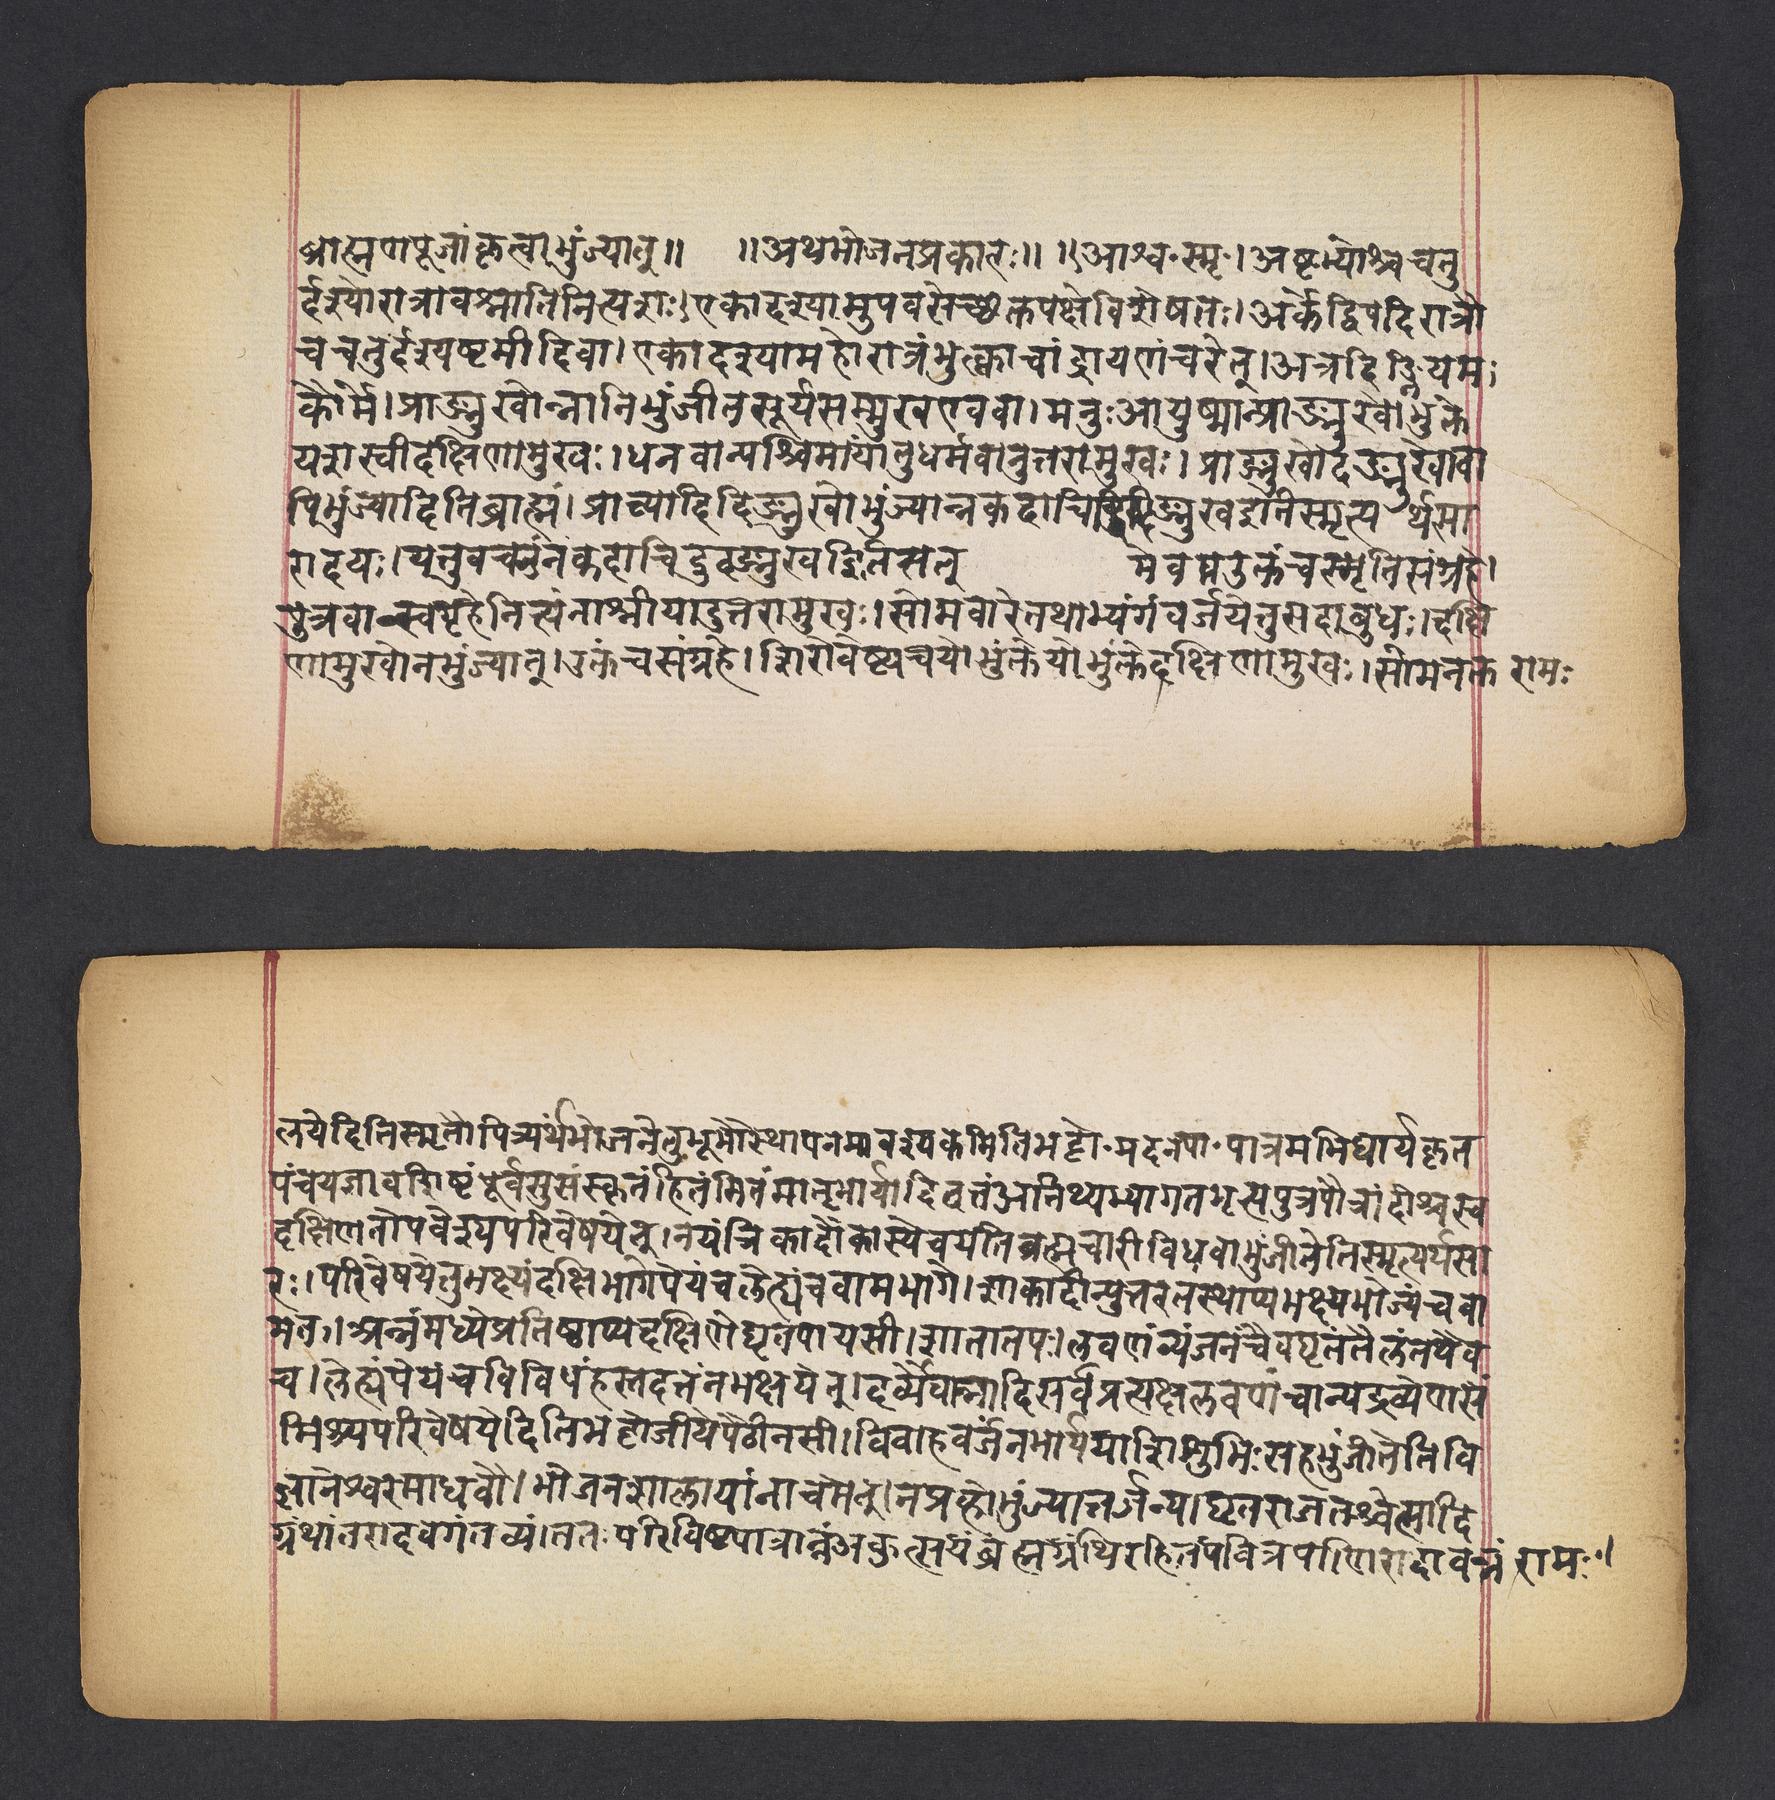 ब्राह्मणपूजांकृत्वाभुंज्यात्॥ ॥अथभोजनप्रकारः॥ ॥आश्व॰स्मृ॰।अष्टम्योश्चचतु
र्दश्योरात्रावश्नातिनित्यशः।एकादश्यामुपवसेच्छुक्लपक्षेविशेषतः।अर्केद्विपदिरात्रौ
चचतुर्दश्यष्टमीदिवा।एकादश्यामहोरात्रंभुक्त्वाचांद्रायणंचरेत्।अत्रदिङ्नियमः
कौर्मे।प्राङ्मुखोन्नानिभुंजीतसूर्यसम्मुखएववा।मनुःआयुष्मान्प्राङ्मुखोभुंक्ते
यशस्वीदक्षिणामुखः।धनवान्पश्चिमायांतुधर्मवानुत्तरामुखः।प्राङ्मुखोदङ्मुखोवा
पिभुंज्यादितिब्राह्मं।प्राच्यादिदिङ्मुखोभुंज्यान्नकदाचिद्विदिङ्मुखइतिस्मृत्यर्थसा
रादयः।यत्तुवचनंनकदाचिदुदङ्मुखइतितत् मेवप्रउक्तंचस्मृतिसंग्रहे।
पुत्रवान्स्वगृहेनित्यंनाश्नीयादुत्तरामुखः।सोमवारेतथाभ्यंगंवर्जयेत्तुसदाबुधः।दक्षि
णामुखोनभुंज्यात्।उक्तंचसंग्रहे।शिरोवेष्ट्यचयोभुंक्तेयोभुंक्तेदक्षिणामुखः।सोमनक्त रामः
लयेदितिस्मृतौपित्र्यर्थभोजनेतुभूमौस्थापनमावश्यकमितिभट्टो॰मदनपा॰पात्रमभिघार्यकृत
पंचयज्ञावशिष्टंपूर्वसुसंस्कृतंहितंमितंमातृभार्यादिदत्तंआतिथ्यभ्यागतभृत्यपुत्रपौत्रादीश्चस्व
दक्षिणतोपवेश्यपरिवेषयेत्।नयंत्रिकादौकास्येचयतिब्रह्मचारीविधवाभुंजीतेतिस्मृत्यर्थसा
रः।परिवेषयेत्तुभक्ष्यंदक्षिभागेपेयंचलेह्यंचवामभागे।शाकादीन्पुत्तरतस्थाप्यभक्ष्यभोज्यंचवा
मतः।अन्नंमध्येप्रतिष्ठाप्यदक्षिणेघृतपायसी।शातातपः।लवणंव्यंजनंचैवघृतंतैलंतथैव
च।लेह्यंपेयंचविविधंहस्तदत्तंनभक्षयेत्।दर्व्यैपान्नादिसर्वंप्रत्यक्षलवणंचान्यद्रव्येणसं
मिश्र्यपरिवेषयेदितिभट्टोजीयेपैठीनसी।विवाहवर्जनभार्ययाशिशुभिःसहभुंजीतेतिवि
ज्ञानेश्वरमाधवौ।भोजनशालायांनाचमेत्।नप्रव्होभुंज्यात्तर्जन्याघृतराजतश्चेत्सादि
ग्रंथांतरादवेगंतव्यं।ततःपरिविष्टपात्रान्नंअकुत्सयंब्रह्मग्रंथिरहितंपवित्रपाणिरादावन्नं रामः॥